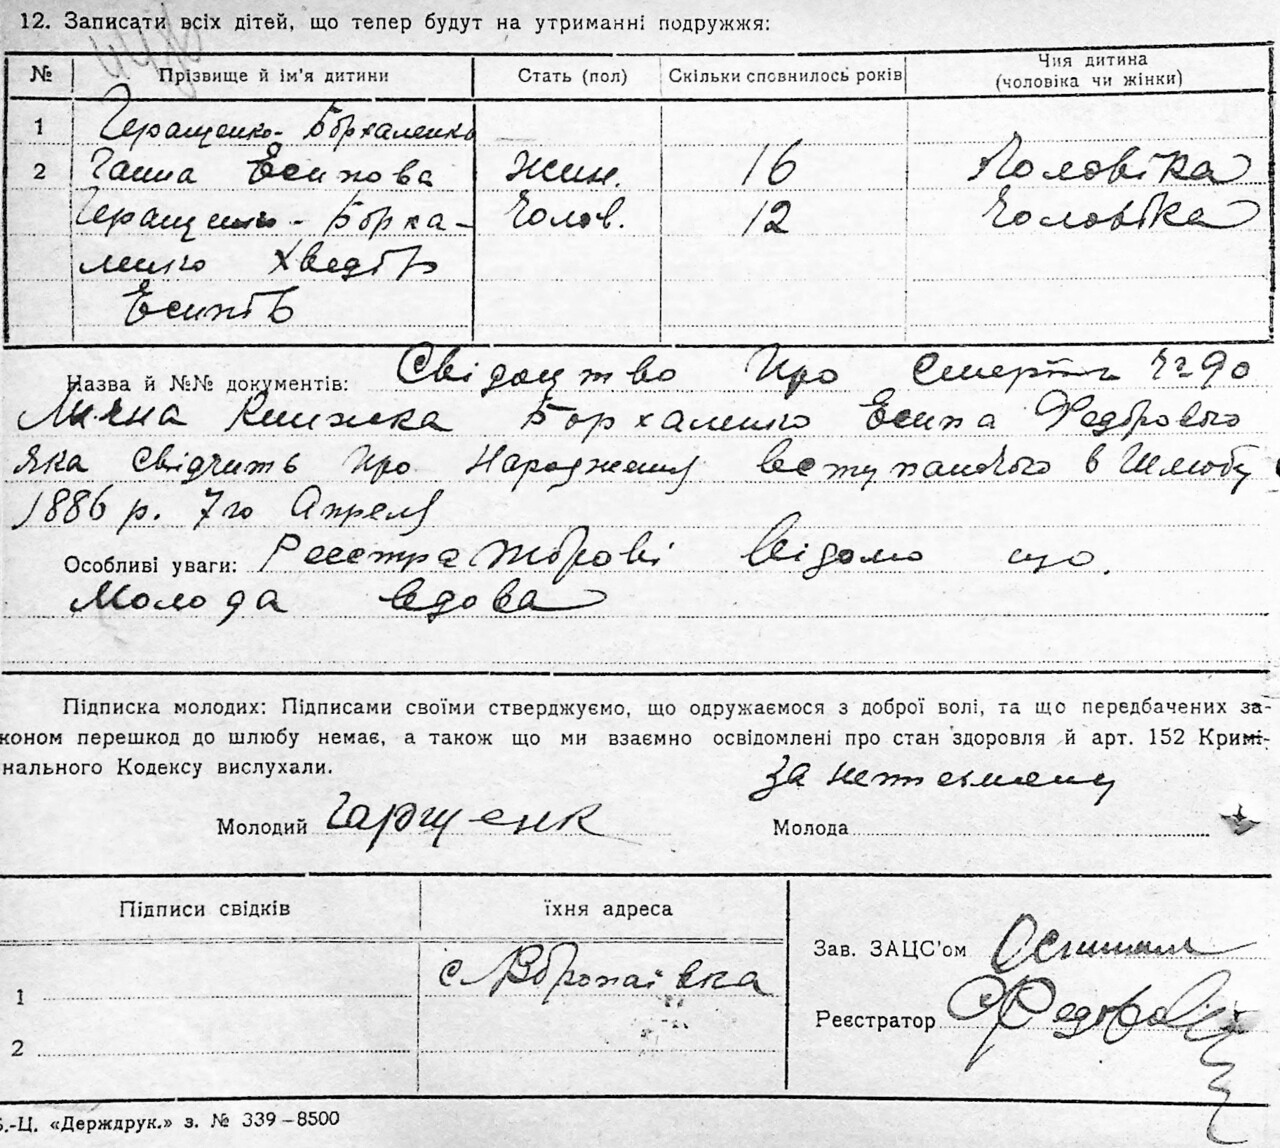 12. Записати всіх дітей, що тепер будут на утриманні подружжя:
№ Прізвище й ім'я дитини Стать (пол) Скільки сповнилось років Чия дитина (чоловіка чи жінки)
1 Геращенко-Борхаленко
2 Ганна Есипова жин. 16 Чоловіка
Геращенко-Борха- Чолов. 12 Чоловіка
ленко Хведір
Есипів
Назва й №№ документів: Свідоцтво Про Смерть
Лична Книжка Борхаленко Есипа Федоровича
яка свідчить про Народження вступаючого в Шлюбу
1886 р. 7го Апреля
Особливі уваги: Реєстраторові відомо що
Молода вдова
Підписка молодих: Підписами своїми стверджуємо, що одружаємося з доброї волі, та що передбачених за-
коном перешкод до шлюбу немає, а також що ми взаємно освідомлені про стан здоровля й арт. 152 Кримі-
нального Кодексу вислухали.
за неписьмену
Молодий Гаращенк Молода
Підписи свідків їхня адреса
Зав. ЗАЦС'ом
1 с Воропаївка
Реєстратор
2
.-Ц. «Держдрук.» з. № 339—8500